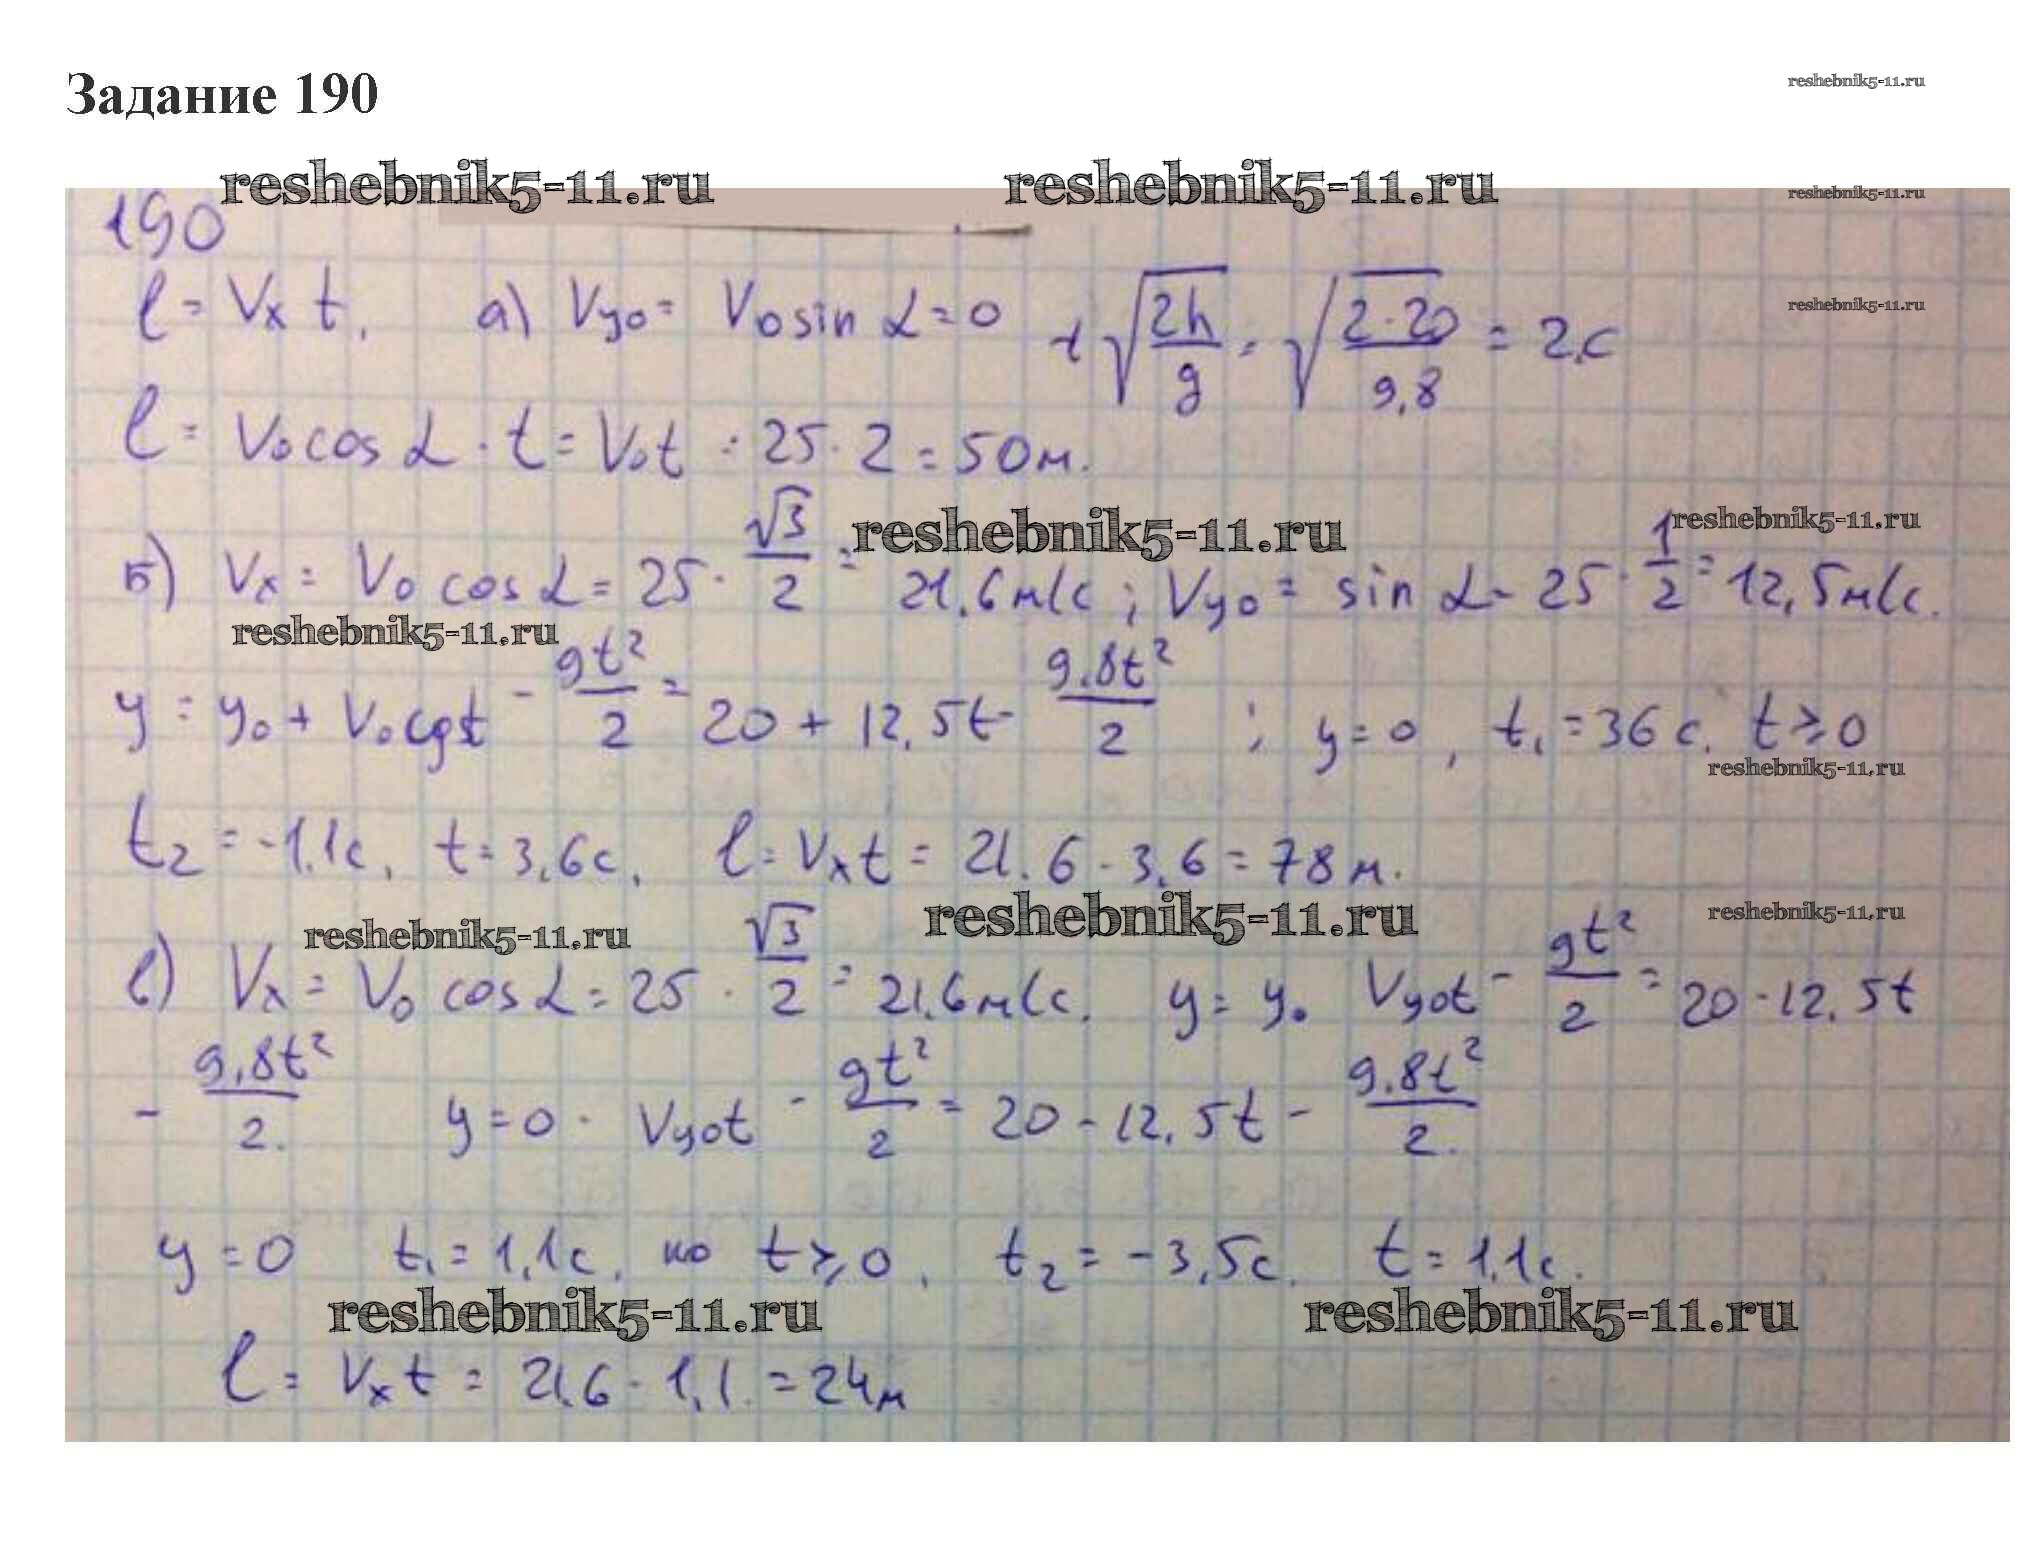 Задание 190
reshebnik5-11.ru
reshebnik5-11.ru reshebnik5-11.ru reshebnik5-11.ru
190
l = Vx t, а) Vyo = Vo sin α = 0 t √(2h/g) = √(2·20/9,8) = 2с
reshebnik5-11.ru
l = Vo cos α · t = Vot = 25 · 2 = 50м.
reshebnik5-11.ru reshebnik5-11.ru
Б) Vx = Vo cos α = 25 · √3/2 = 21,6 м/с ; Vyo = sin α = 25 · 1/2 = 12,5 м/с.
reshebnik5-11.ru
y = yo + Vo t - gt²/2 = 20 + 12,5t - 9,8t²/2 ; y = 0, t₁ = 36 с, t ≥ 0
reshebnik5-11.ru
t₂ = -1,1с, t = 3,6с, l = Vxt = 21,6 · 3,6 = 78 м.
reshebnik5-11.ru reshebnik5-11.ru reshebnik5-11.ru
в) Vx = Vo cos α = 25 · √3/2 = 21,6 м/с. y = yo Vyot - gt²/2 = 20 - 12,5t
- 9,8t²/2. y = 0 · Vyot - gt²/2 = 20 - 12,5t - 9,8t²/2.
y = 0 t₁ = 1,1с, но t ≥ 0, t₂ = -3,5с. t = 1,1с.
reshebnik5-11.ru reshebnik5-11.ru
l = Vxt = 21,6 · 1,1. = 24м